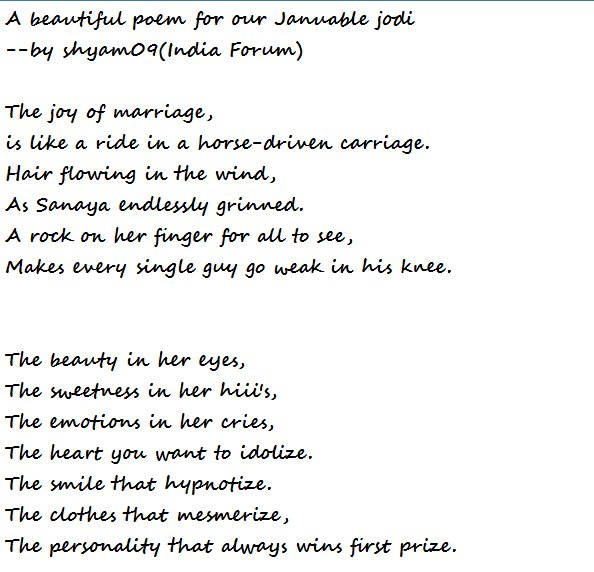 A beautiful poem for our Januable jodi
--by shyam09(India Forum)
The joy of marriage,
is like a ride in a horse-driven carriage.
Hair flowing in the wind,
As Sanaya endlessly grinned.
A rock on her finger for all to see,
Makes every single guy go weak in his knee.
The beauty in her eyes,
The sweetness in her hiii's,
The emotions in her cries,
The heart you want to idolize.
The smile that hypnotize.
The clothes that mesmerize,
The personality that always wins first prize.